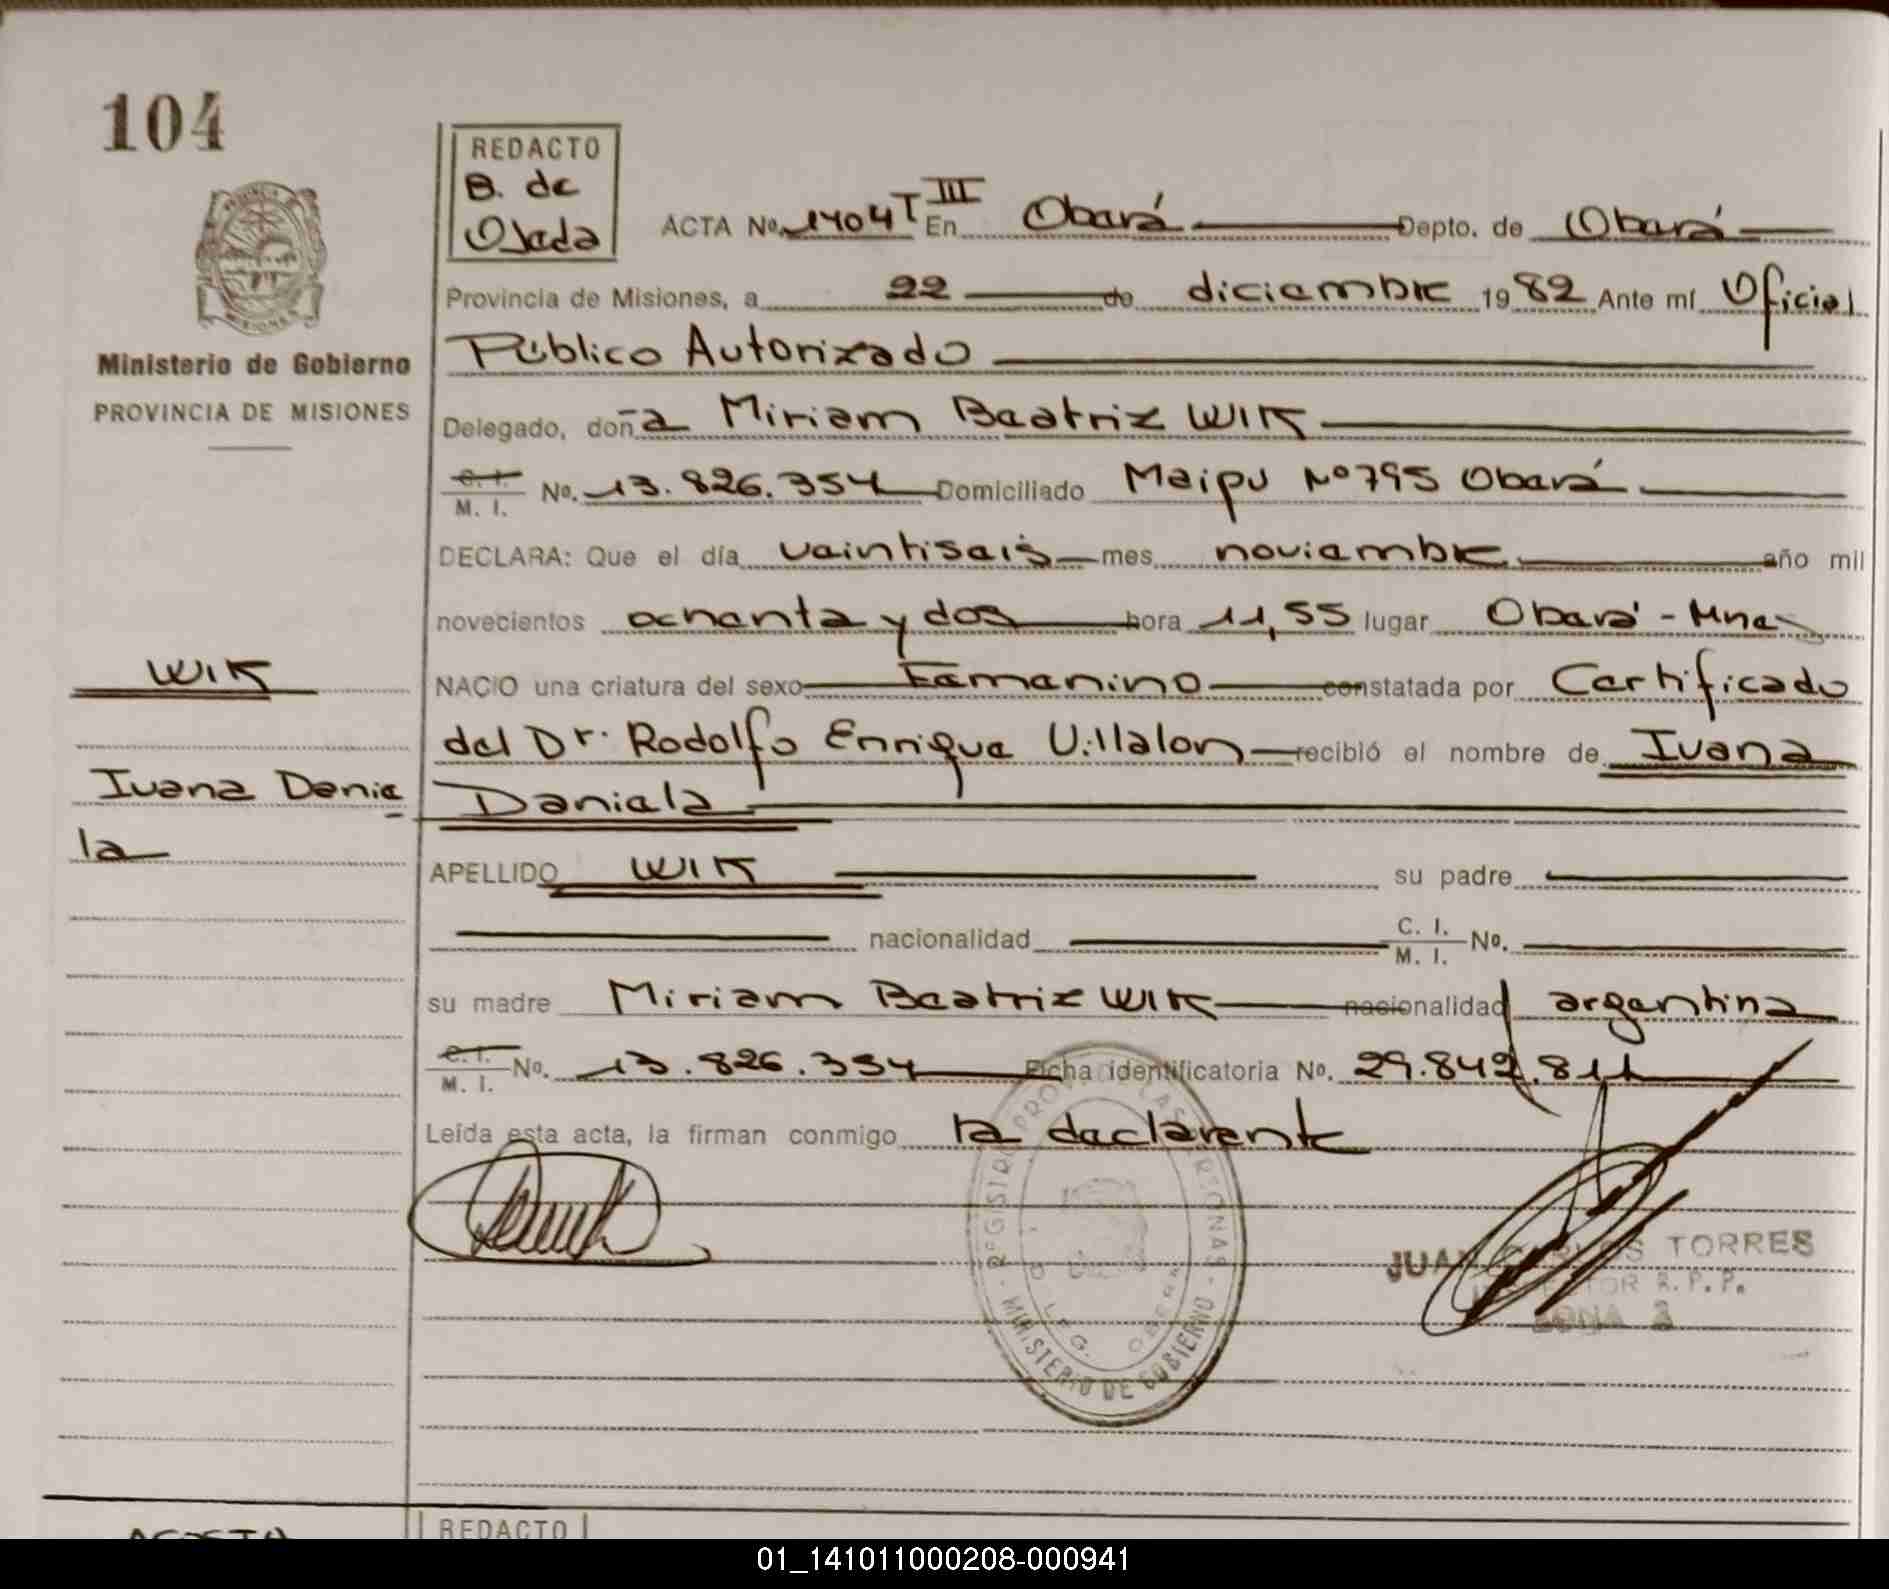 104
REDACTO
B. de
Ojeda
ACTA No. 1404 T III En Oberá Depto. de Oberá
Provincia de Misiones, a 22 de diciembre 1982 Ante mí Oficial
Público Autorizado
Ministerio de Gobierno
PROVINCIA DE MISIONES
Delegado, doña Miriam Beatriz WIK
C. I.
M. I. No. 13.826.354 Domiciliado Maipu Nº 795 Oberá
DECLARA: Que el día veintiseis mes noviembre año mil
novecientos ochenta y dos hora 11,55 lugar Oberá - Mnes
WIK
NACIO una criatura del sexo Femenino constatada por Certificado
del Dr. Rodolfo Enrique Villalon recibió el nombre de Ivana
Ivana Danie
la
Daniela
APELLIDO WIK su padre
nacionalidad C. I. M. I. No.
su madre Miriam Beatriz WIK nacionalidad argentina
C. I.
M. I. No. 13.826.354 Ficha identificatoria No. 29.842.811
Leída esta acta, la firman conmigo la declarente
MINISTERIO DE GOBIERNO
JUAN CARLOS TORRES
R. P. P.
ZONA
REDACTO
01_141011000208-000941